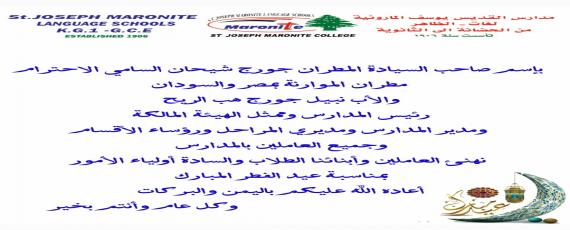 St.JOSEPH MARONITE
LANGUAGE SCHOOLS
K.G.1 -G.C.E
ESTABLISHED 1906
ST JOSEPH MARONITE LANGUAGE SCHOOLS
Maronite
ST JOSEPH MARONITE COLLEGE
مدارس القديس يوسف المارونية
لغات - الظاهر
من الحضانة الى الثانوية
تأسست سنة ١٩٠٦
بإسم صاحب السيادة المطران جورج شيحان السامي الاحترام
مطران الموارنة بمصر والسودان
والأب نبيل جورج هب الريح
رئيس المدارس وممثل الهيئة المالكة
ومدير المدارس ومديري المراحل ورؤساء الأقسام
وجميع العاملين بالمدارس
نهنئ العاملين وأبنائنا الطلاب والسادة أولياء الأمور
بمناسبة عيد الفطر المبارك
أعاده الله عليكم باليمن والبركات
وكل عام وأنتم بخير
عيد مبارك